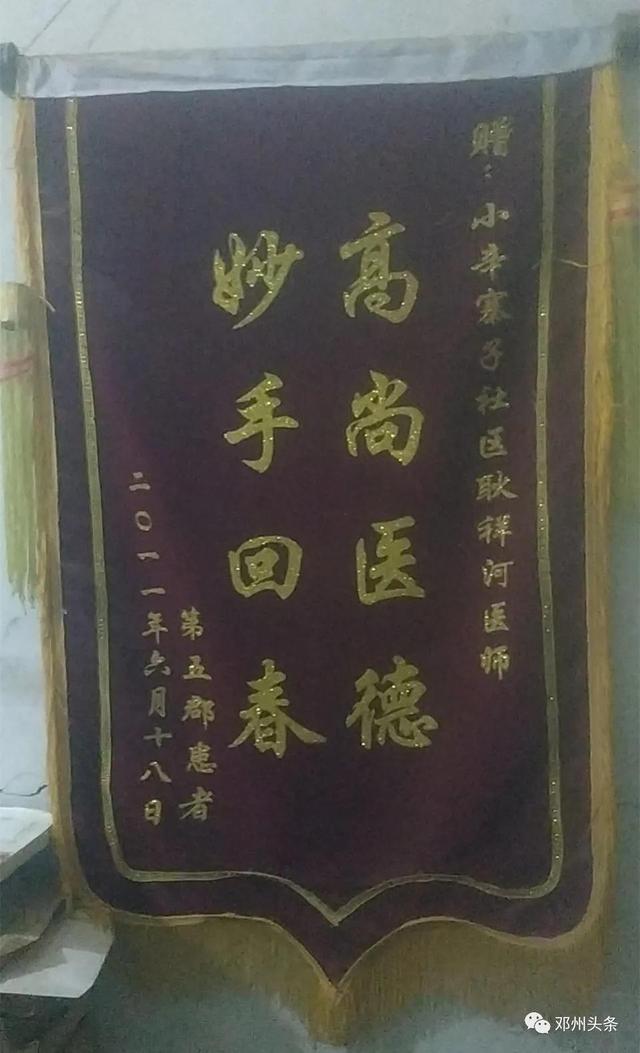 赠：小辛寨子社区耿祥河医师
高尚医德
妙手回春
第五郡患者
二〇一一年六月十八日
邓州头条